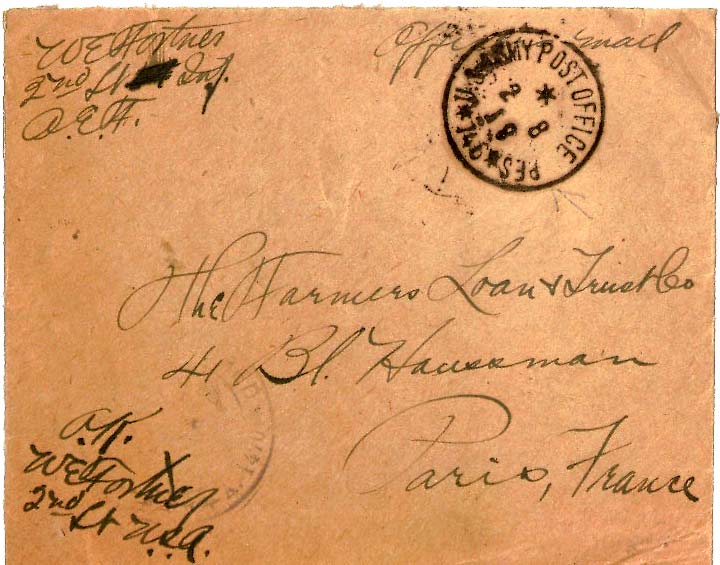 WE Fortner
2nd Lt Inf.
A.E.F.
Officers mail
U.S. ARMY POST OFFICE
2 8
19
The Farmers Loan & Trust Co
41 Bl. Haussman
Paris, France
O.K.
WE Fortner
2nd Lt U.S.A.